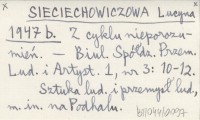 SIECIECHOWICZOWA Lucyna
1947 b. Z cyklu nieporozu-
mień. — Biul. Spółdz. Przem.
Lud. i Artyst. 1, nr 3: 10-12.
Sztuka lud. i przemysł lud.,
m. in. na Podhalu.